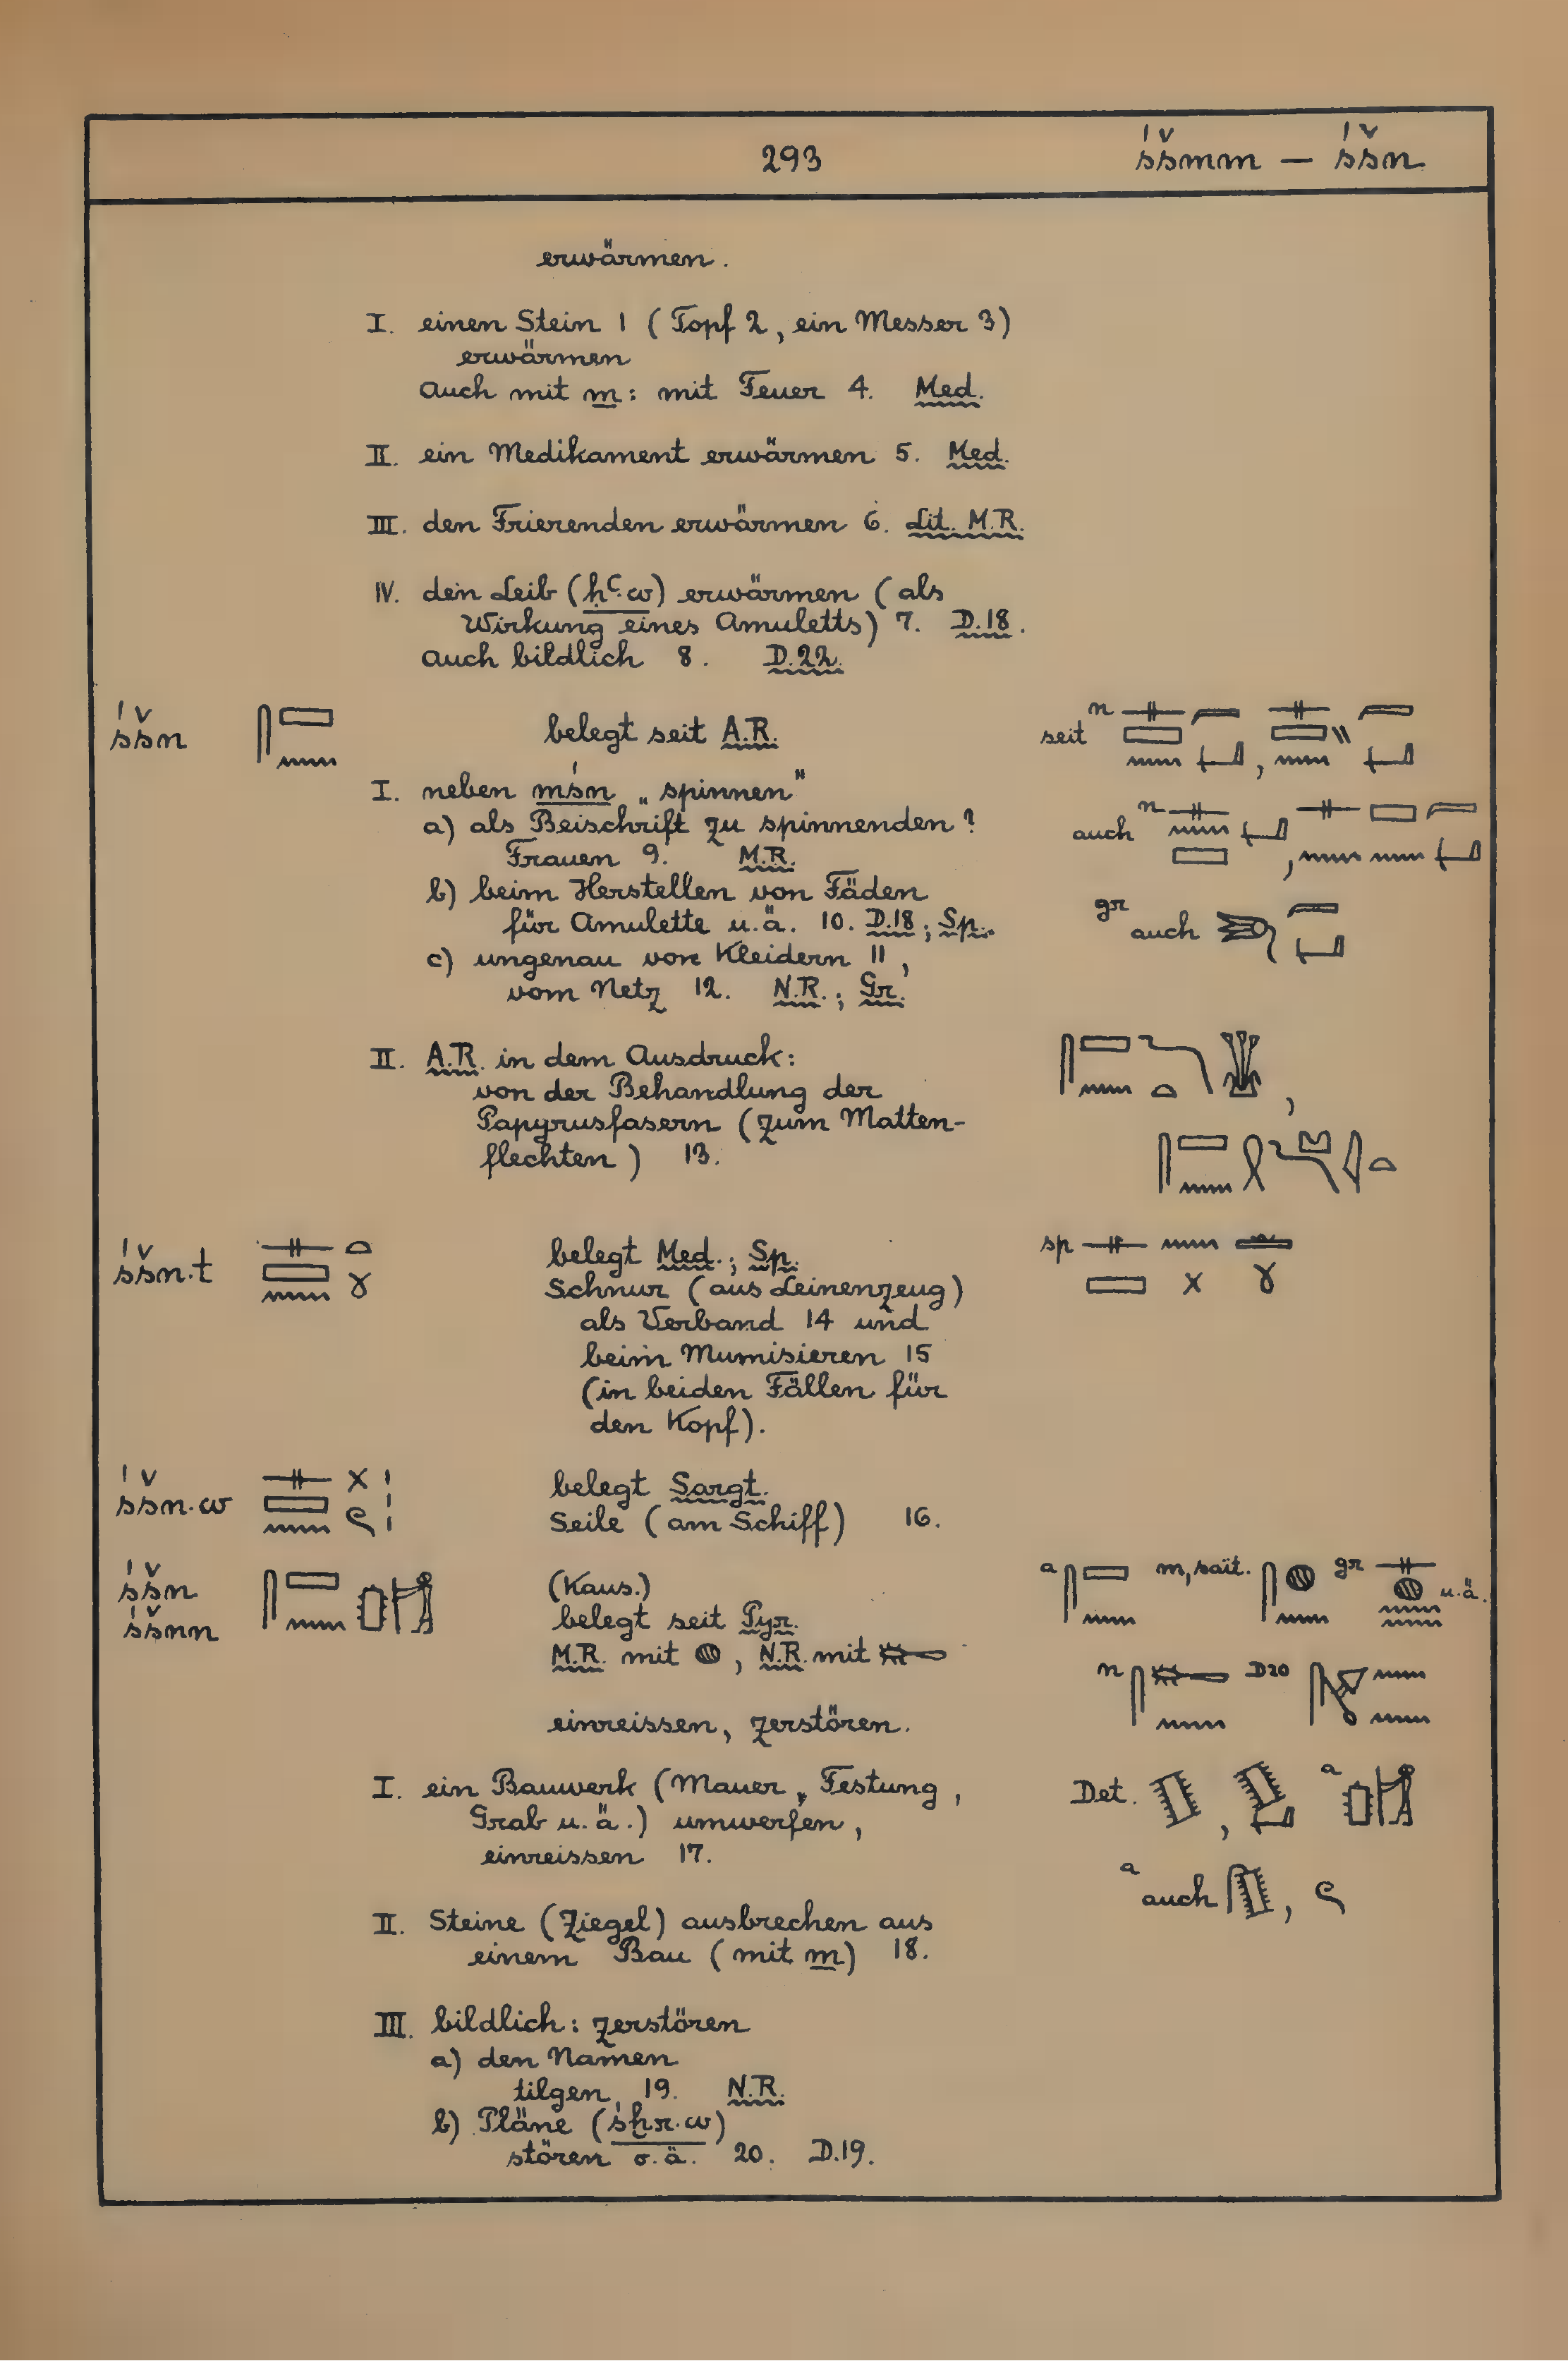 293 śšmm — śšn
erwärmen.
I. einen Stein 1 (Topf 2, ein Messer 3)
erwärmen
Auch mit m: mit Feuer 4. Med.
II. ein Medikament erwärmen 5. Med.
III. den Frierenden erwärmen 6. Lit. M.R.
IV. den Leib (ḥꜥ.w) erwärmen (als
Wirkung eines Amuletts) 7. D.18.
Auch bildlich 8. D.22.
śšn belegt seit A.R. seit n
I. neben mśn „spinnen"
a) als Beischrift zu spinnenden ?
Frauen 9. M.R.
auch n
b) beim Herstellen von Fäden
für Amulette u.ä. 10. D.18; Sp.
gr auch
c) ungenau von Kleidern 11,
vom Netz 12. N.R.; Gr.
II. A.R. in dem Ausdruck:
von der Behandlung der
Papyrusfasern (zum Matten-
flechten) 13.
śšn.t belegt Med.; Sp. sp
Schnur (aus Leinenzeug)
als Verband 14 und
beim Mumisieren 15
(in beiden Fällen für
den Kopf).
śšn.w belegt Sargt.
Seile (am Schiff) 16.
śšn (Kaus.) a m, sait. gr u.ä.
śšnn belegt seit Pyr.
M.R. mit , N.R. mit
n D20
einreissen, zerstören.
I. ein Bauwerk (Mauer, Festung,
Grab u.ä.) umwerfen,
einreissen 17.
Det. a
a auch
II. Steine (Ziegel) ausbrechen aus
einem Bau (mit m) 18.
III. bildlich: zerstören
a) den Namen
tilgen 19. N.R.
b) Pläne (śḫr.w)
stören o.ä. 20. D.19.